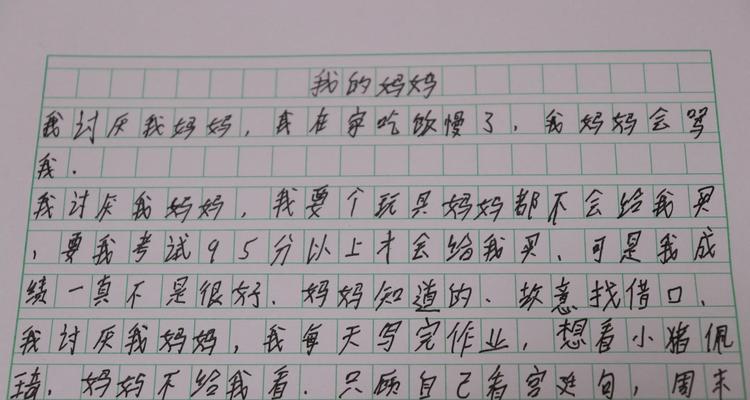 我的妈妈
我讨厌我妈妈，我在家吃饭慢了，我妈妈会骂
我.
我讨厌我妈妈，我要个玩具妈妈都不会给我买
，要我考试95分以上才会给我买，可是我成
绩一真不是很好、妈妈知道的、故意找借口，
我讨厌我妈妈，我每天写完作业，想看小猪佩
琦，妈妈不给我看，只顾自己看宫廷句，周末